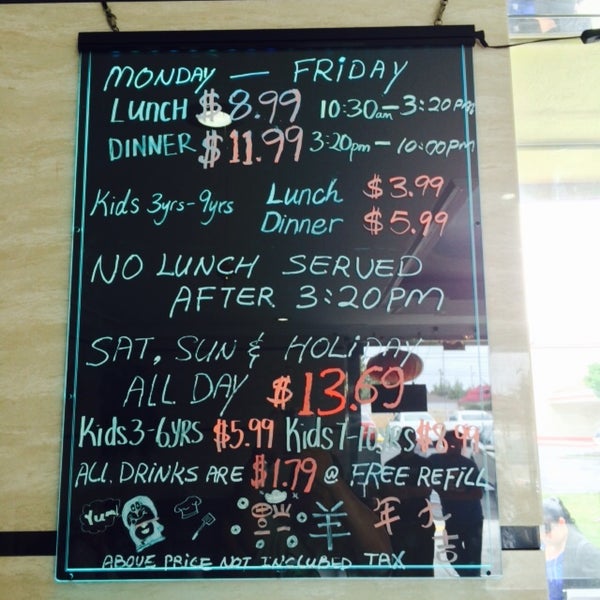 MONDAY — FRIDAY
LUNCH $8.99 10:30am - 3:20pm
DINNER $11.99 3:20pm - 10:00pm
Kids 3yrs-9yrs Lunch $3.99
Dinner $5.99
NO LUNCH SERVED
AFTER 3:20PM
SAT, SUN & HOLIDAY
ALL DAY $13.69
Kids 3-6YRS $5.99 Kids 7-10YRS $8.99
ALL. DRINKS ARE $1.79 @ FREE REFILL
Yum!
羊 年 大
吉
ABOVE PRICE NOT INCLUDED TAX